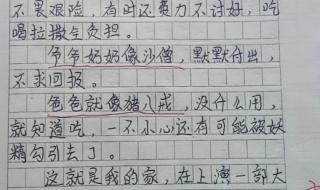 不畏艰险，有时还费力不讨好，吃
喝拉撒全负担。
爷爷奶奶像沙僧，默默付出，
不求回报。
爸爸就像猪八戒，没什么用，
就知道吃，一不小心还有可能被妖
精勾引去了。
这就是我的家，在上演一部大